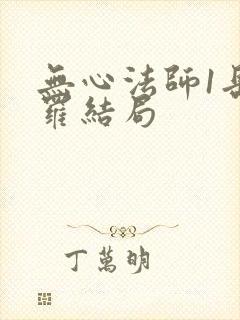 無心法師1岳綺
羅結局
丁萬明